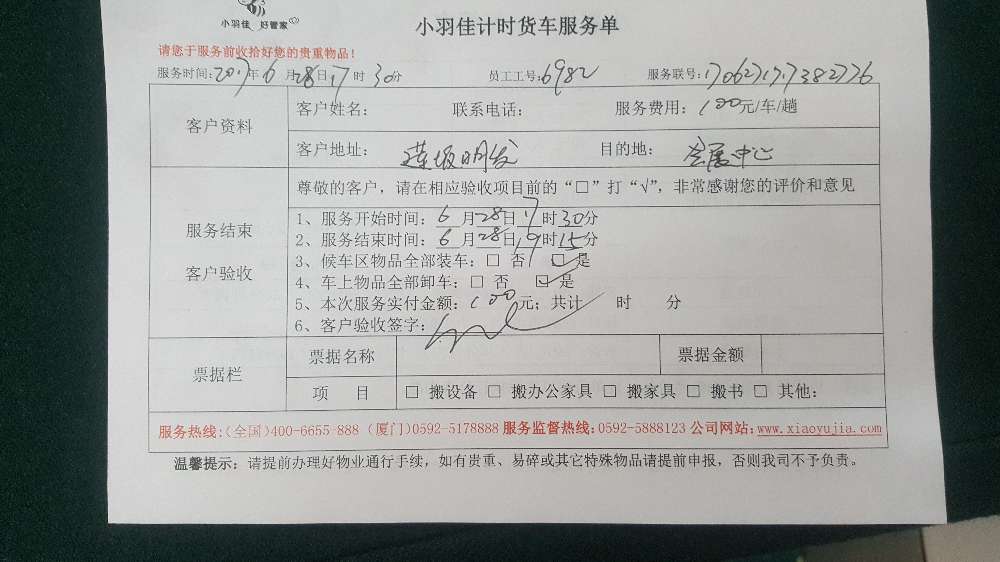 小羽佳 好管家
小羽佳计时货车服务单
请您于服务前收拾好您的贵重物品！
服务时间：2017年6月28日17时30分 员工工号：6982 服务联号：170627177382776
客户资料
客户姓名： 联系电话： 服务费用：100元/车/趟
客户地址：莲坂明发 目的地：会展中心
尊敬的客户，请在相应验收项目前的“□”打“√”，非常感谢您的评价和意见
服务结束
客户验收
1、服务开始时间：6月28日17时30分
2、服务结束时间：6月28日19时15分
3、候车区物品全部装车：□ 否 ☑ 是
4、车上物品全部卸车：□ 否 ☑ 是
5、本次服务实付金额：100元；共计 时 分
6、客户验收签字：
票据栏
票据名称 票据金额
项 目 □ 搬设备 □ 搬办公家具 □ 搬家具 □ 搬书 □ 其他：
服务热线：(全国)400-6655-888 (厦门)0592-5178888 服务监督热线：0592-5888123 公司网站：www.xiaoyujia.com
温馨提示：请提前办理好物业通行手续，如有贵重、易碎或其它特殊物品请提前申报，否则我司不予负责。